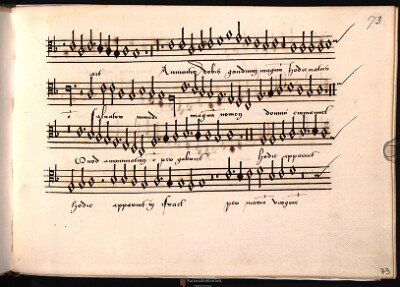 73
ait Annuncio vobis gaudium magnum hodie natus
ē salvator mundi magnum nomen domini emanuel
Quod annunciatum ē per gabriel hodie apparuit
hodie apparuit in israel per mariam virginem
73